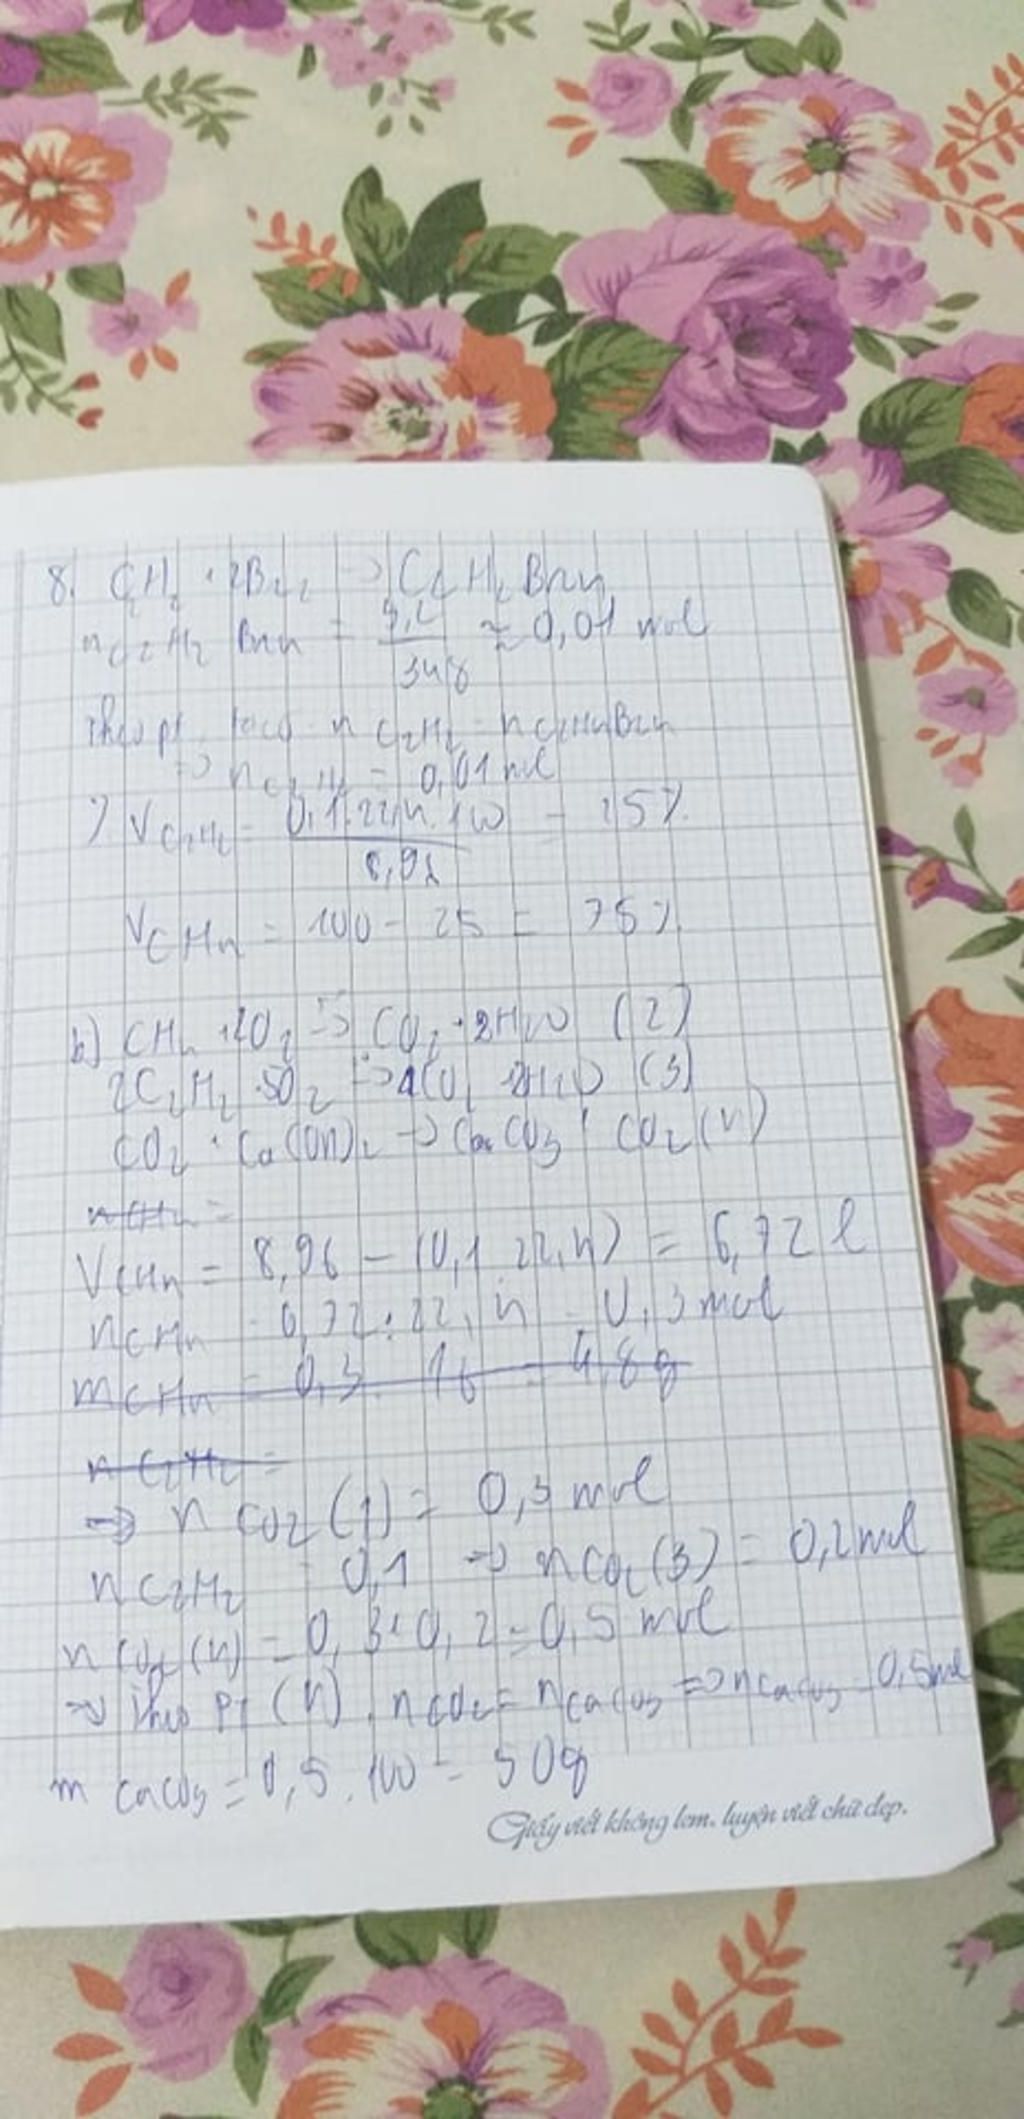 8. C2H2 + 2Br2 → C2H2Br4
nC2H2Br4 = 3,2 / 346 ≈ 0,01 mol
theo pt, ta có nC2H2 = nC2H4Br4
=> nC2H2 = 0,01 mol
% VC2H2 = 0,1.22,4.100 / 8,96 = 25%
VCH4 = 100 - 25 = 75%
b) CH4 + 2O2 → CO2 + 2H2O (2)
2C2H2 + 5O2 → 4CO2 + 2H2O (3)
CO2 + Ca(OH)2 → CaCO3 + CO2 (4)
nCH4 =
VCH4 = 8,96 - (0,1.22,4) = 6,72 l
nCH4 = 6,72 : 22,4 = 0,3 mol
mCH4 = 0,3 . 16 = 4,8g
nC2H2 =
=> nCO2 (1) = 0,3 mol
nC2H2 = 0,1 => nCO2 (3) = 0,2 mol
nCO2 (4) = 0,3 + 0,2 = 0,5 mol
=> Theo Pt (4), nCO2 = nCaCO3 => nCaCO3 = 0,5 mol
mCaCO3 = 0,5 . 100 = 50g
Giấy viết không lem, luyện viết chữ đẹp.